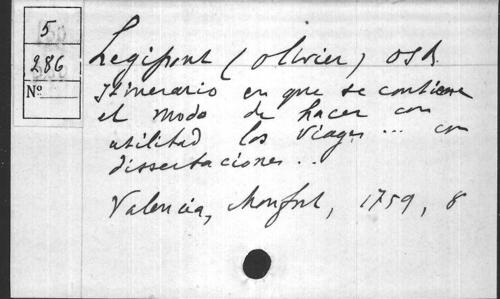 5
286
Nº
Legipont (Olivier) OSB.
Itinerario en que se contiene
el modo de hacer con
utilidad los viages... con
dissertaciones..
Valencia, Monfort, 1759, 8